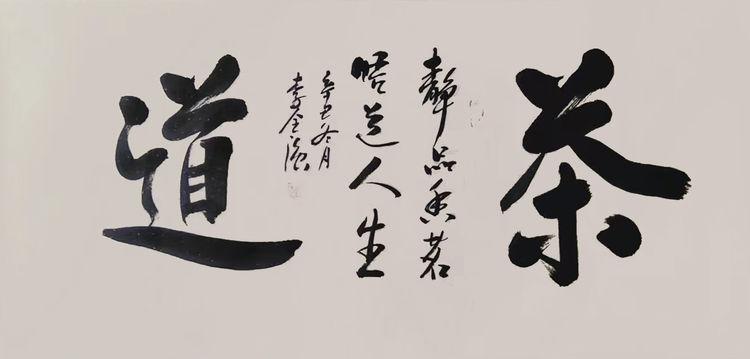 茶
静品香茗
悟道人生
辛丑冬月
李全滨
道